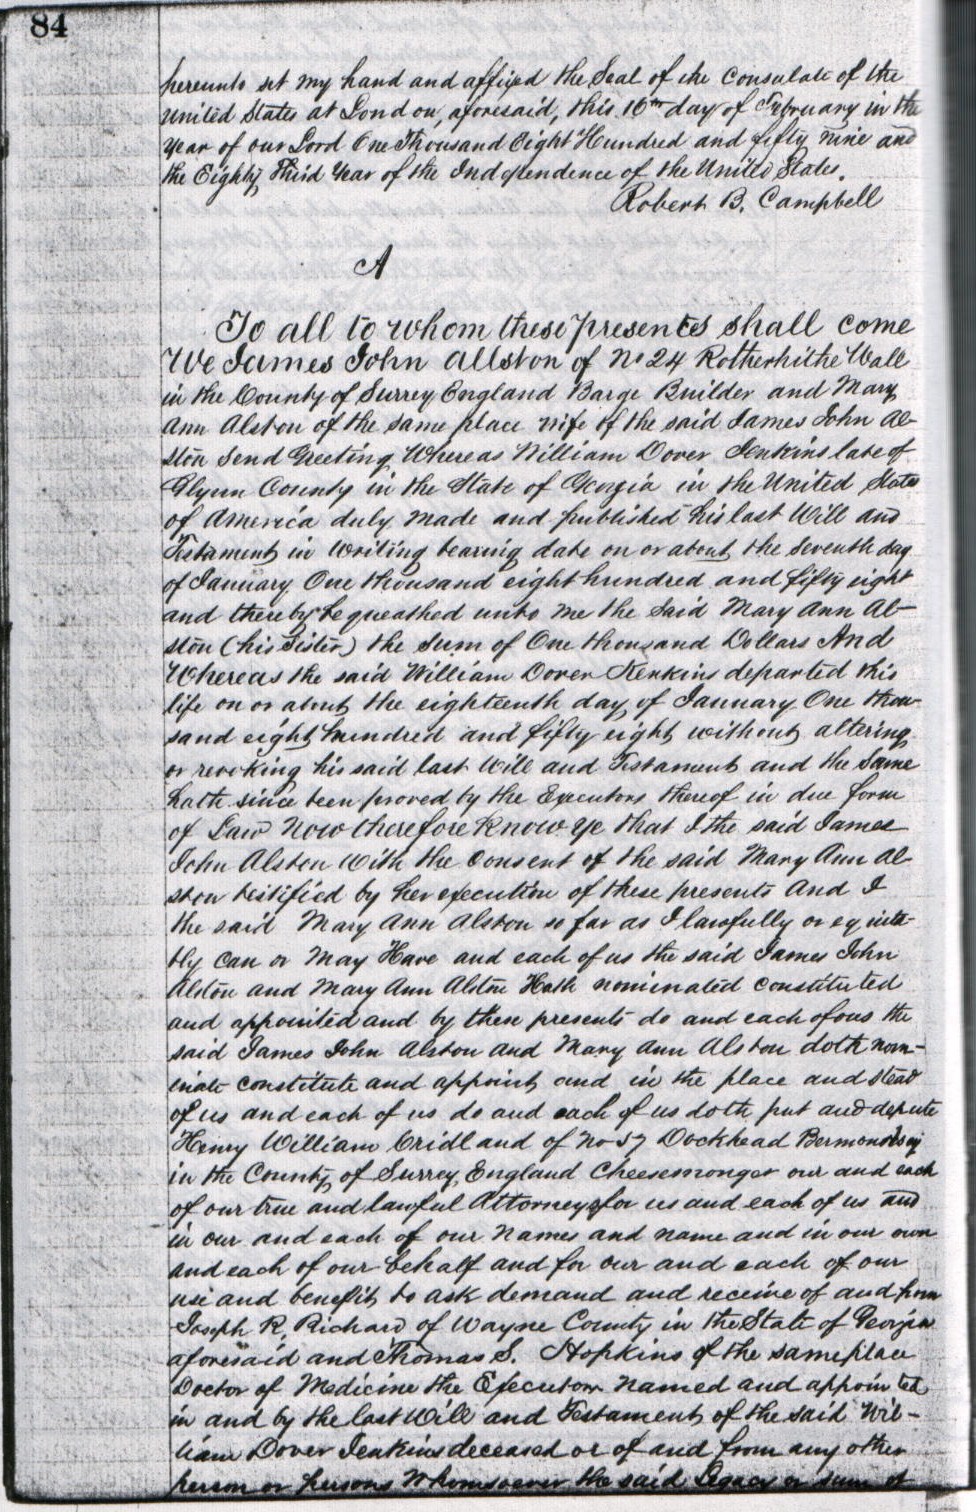 84
hereunto set my hand and affixed the Seal of the Consulate of the
United States at London, aforesaid, this 16th day of February in the
year of our Lord One Thousand Eight Hundred and fifty nine and
the Eighty Third Year of the Independence of the United States.
Robert B. Campbell
A
To all to whom these presents shall come
We James John Allston of No 24 Rotherhithe Wall
in the County of Surrey England Barge Builder and Mary
Ann Alston of the same place wife of the said James John Al-
ston Send Greeting Whereas William Dover Jenkins late of
Glynn County in the State of Georgia in the United States
of America duly made and published his last Will and
Testament in writing bearing date on or about the Seventh day
of January One thousand eight hundred and fifty eight
and thereby bequeathed unto me the said Mary Ann Al-
ston (his Sister) the Sum of One thousand Dollars And
Whereas the said William Dover Jenkins departed this
life on or about the eighteenth day of January One thou-
sand eight hundred and fifty eight without altering
or revoking his said last Will and Testament and the Same
hath since been proved by the Executors thereof in due form
of Law Now therefore Know Ye that I the said James
John Alston With the Consent of the said Mary Ann Al-
ston testified by her execution of these presents And I
the said Mary Ann Alston so far as I lawfully or equita-
bly Can or May Have and each of us the said James John
Alston and Mary Ann Alston Hath nominated constituted
and appointed and by these presents do and each of us the
said James John Alston and Mary Ann Alston doth nom-
inate constitute and appoint and in the place and stead
of us and each of us do and each of us doth put and depute
Henry William Cridland of No 57 Dockhead Bermondsey
in the County of Surrey England Cheesemonger our and each
of our true and lawful Attorney for us and each of us and
in our and each of our Names and name and in our own
and each of our behalf and for our and each of our
use and benefit to ask demand and receive of and from
Joseph R. Richard of Wayne County in the State of Georgia
aforesaid and Thomas S. Hopkins of the same place
Doctor of Medicine the Executors named and appointed
in and by the last Will and Testament of the said Wil-
liam Dover Jenkins deceased or of and from any other
person or persons Whomsoever the said Legacy or sum of